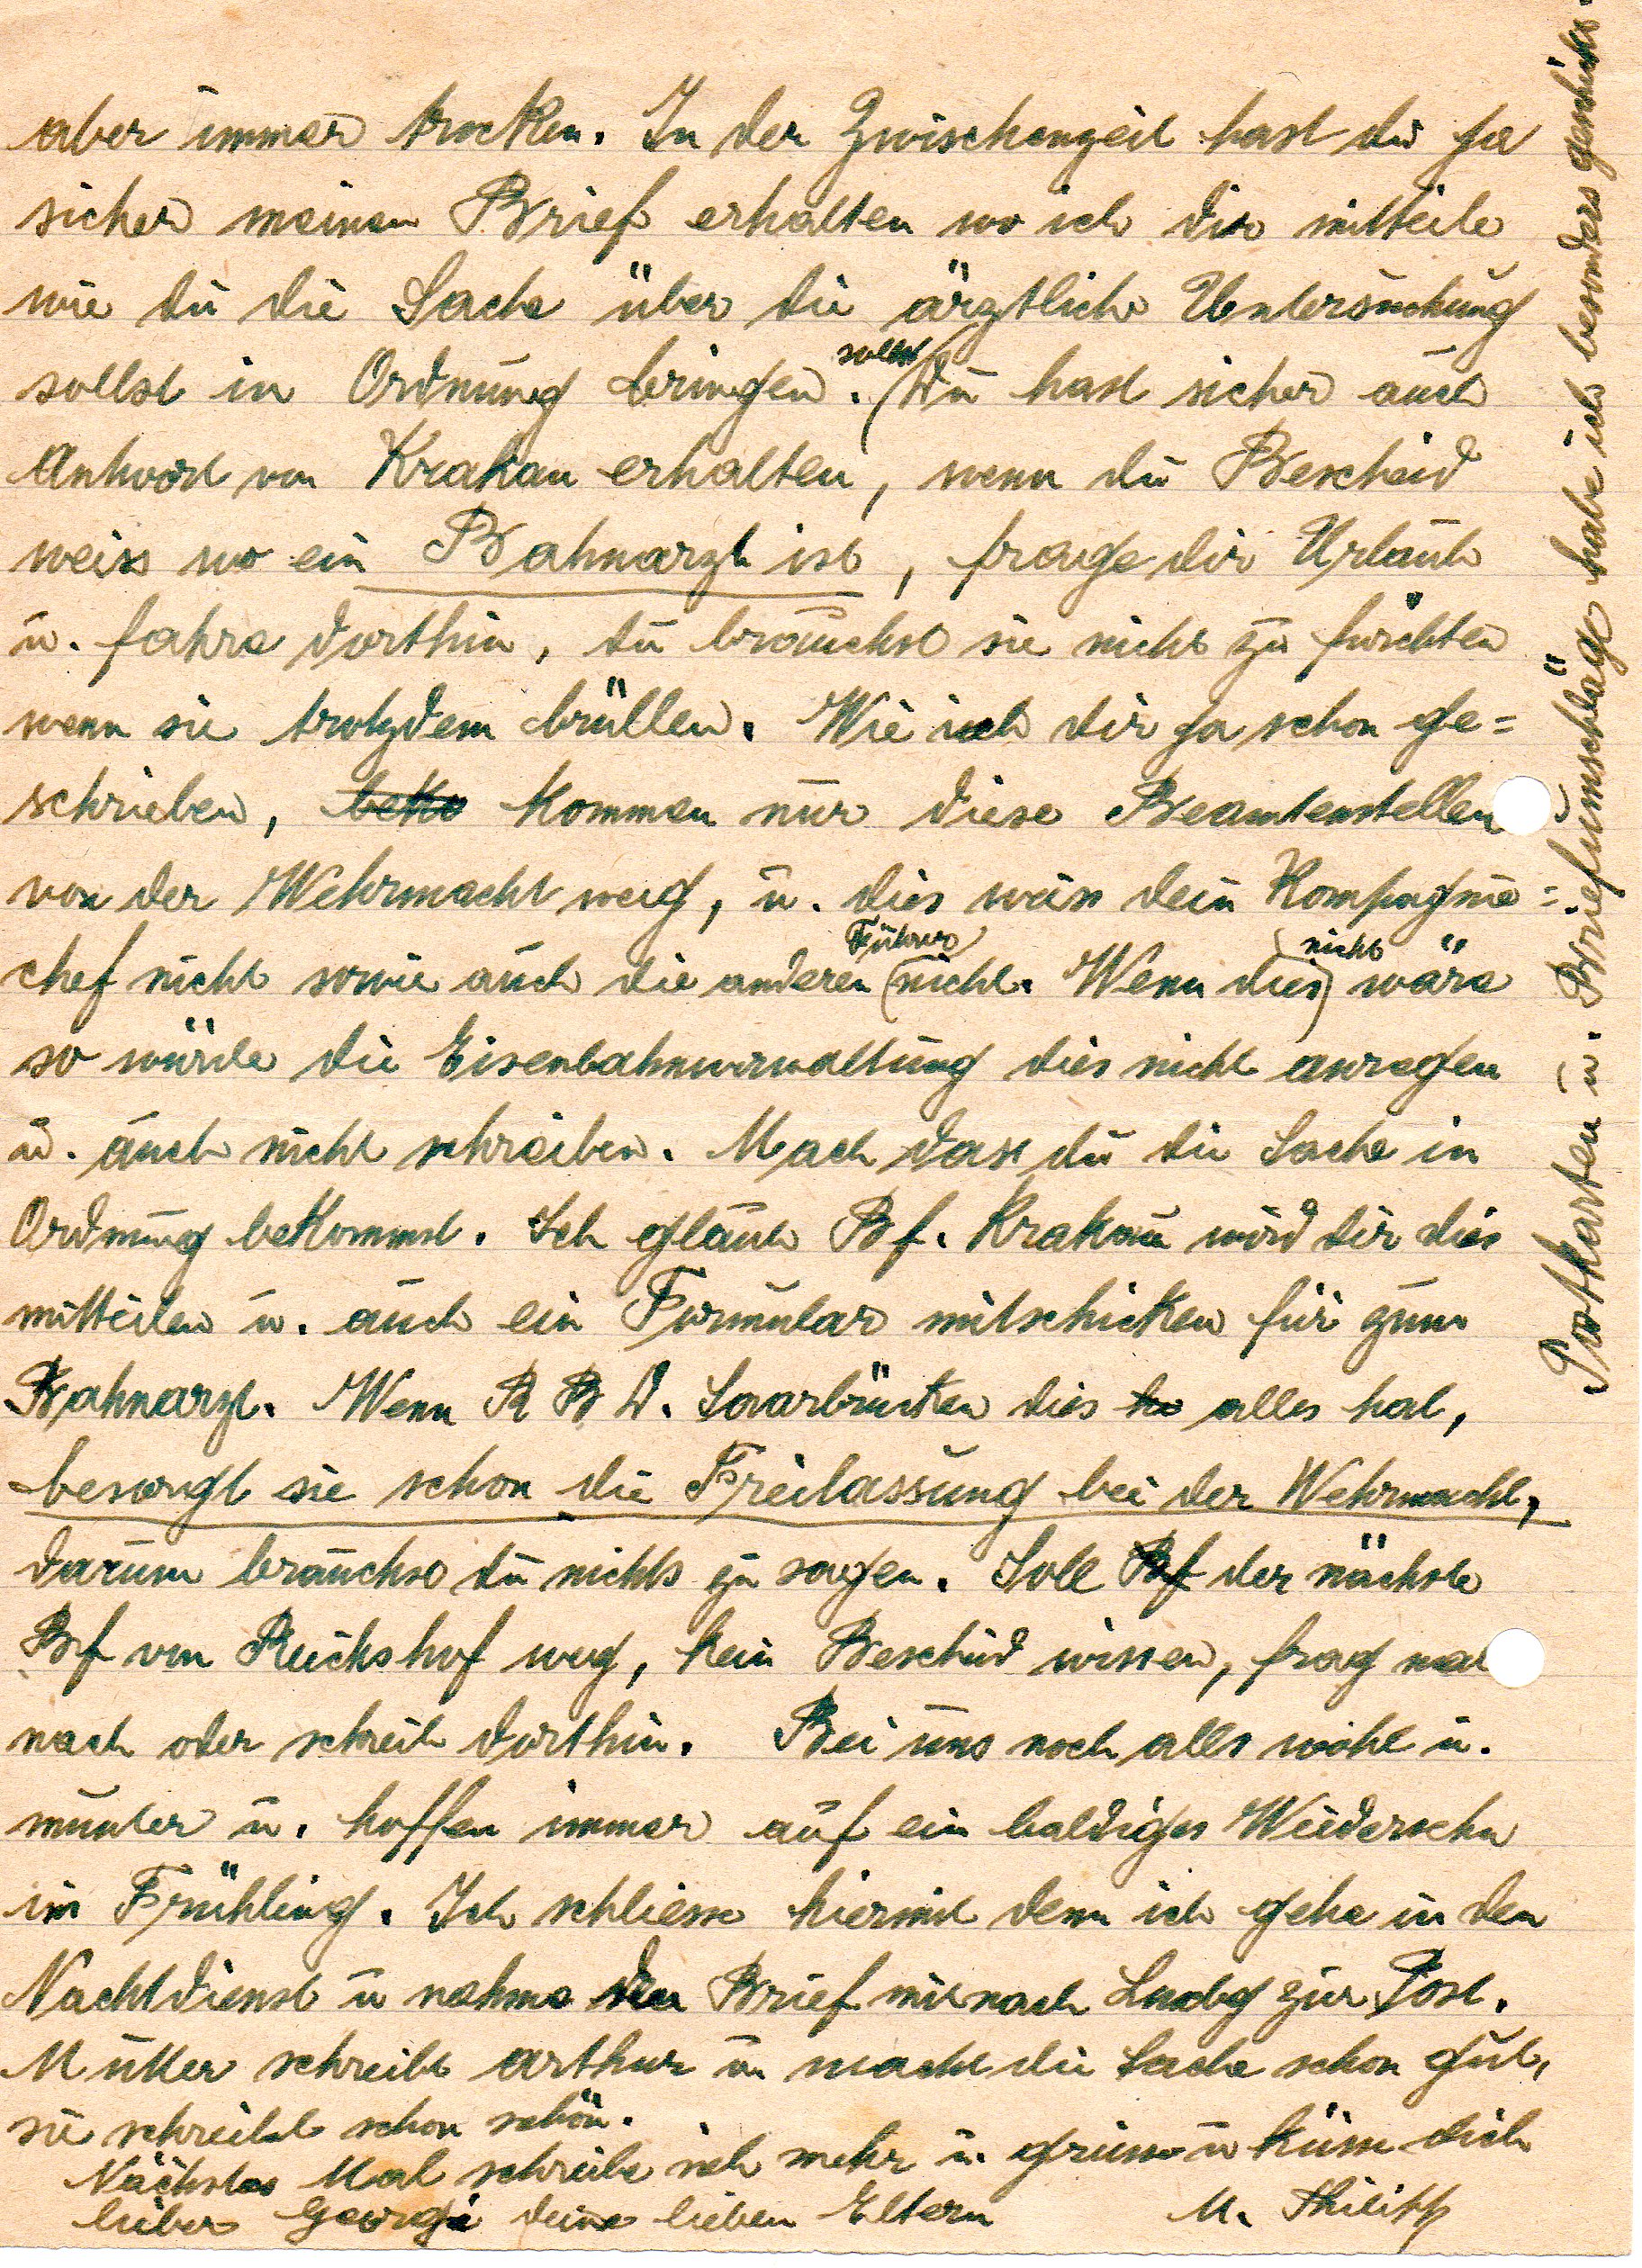 aber immer trocken. In der Zwischenzeit hast du ja
sicher meinen Brief erhalten wo ich dir mitteile
wie du die Sache über die ärztliche Untersuchung
sollst in Ordnung bringen. (Du hast sicher auch
Antword von Krakau erhalten, wenn du Bescheid
weiss wo ein Bahnarzt ist, frage dir Urlaub
u. fahre dorthin, du brauchst sie nicht zu fürchten
wenn sie trotzdem brüllen. Wie ich dir ja schon ge=
schrieben, kommen nur diese Beamtenstellen
von der Wehrmacht weg, u. dies weiss dein Kompagnie=
chef nicht sowie auch die anderen (Führer) nicht. Wenn dies (nicht) wäre
so würde die Eisenbahnverwaltung dies nicht anregen
u. auch nicht schreiben. Mach dass du die Sache in
Ordnung bekommst. Ich glaub Bf. Krakau wird dir dies
mitteilen u. auch ein Formular mitschicken für zum
Bahnarzt. Wenn R B D. Saarbrücken dies alles hat,
besorgt sie schon die Freilassung bei der Wehrmacht,
darum brauchst du nichts zu sagen. Soll der nächste
Bf von Reichshof weg, kein Bescheid wissen, frag mal
nach oder schreib dorthin. Bei uns noch alles wohl u.
munter u. hoffen immer auf ein baldiges Wiedersehn
im Frühling. Ich schliesse hiermit denn ich gehe in den
Nachtdienst u nehme den Brief mit nach Ludbg zur Post.
Mutter schreibt Arthur u. macht die Sache schon gut,
sie schreibt schon schön.
Nächstes Mal schreibe ich mehr u. grüsse u küsse dich
lieber George deine lieben Eltern M. Philipp
Postkarten u. Briefumschläge habe ich besonders geschickt.